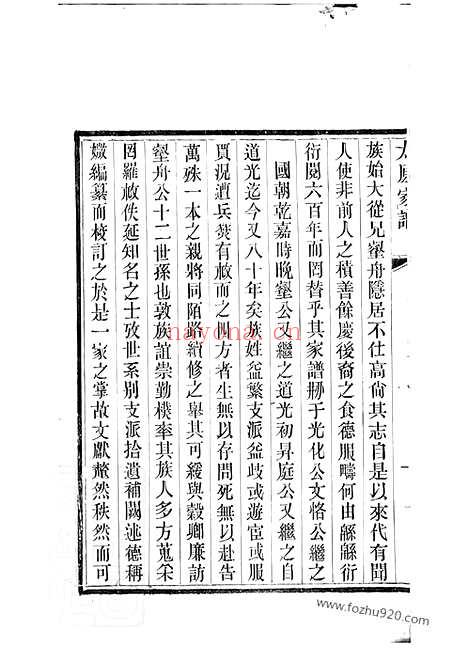 太原家譜
族始大從兄壑舟隱居不仕高尙其志自是以來代有聞
人使非前人之積善餘慶後裔之食德服疇何由緜緜衍
衍閱六百年而罔替乎其家譜刱于光化公文恪公繼之
國朝乾嘉時晚壑公又繼之道光初昇庭公又繼之自
道光迄今又八十年矣族姓益繁支派益歧或遊宦或服
賈況遭兵燹有散而之四方者生無以存問死無以赴告
萬殊一本之親將同陌路續修之舉其可緩與榖卿廉訪
壑舟公十二世孫也敦族誼崇勤樸率其族人多方蒐采
罔羅散佚延知名之士攷世系別支派拾遺補闕述德稱
媺編纂而校訂之於是一家之掌故文獻釐然秩然而可
nayona.cn
www.fozhu920.com